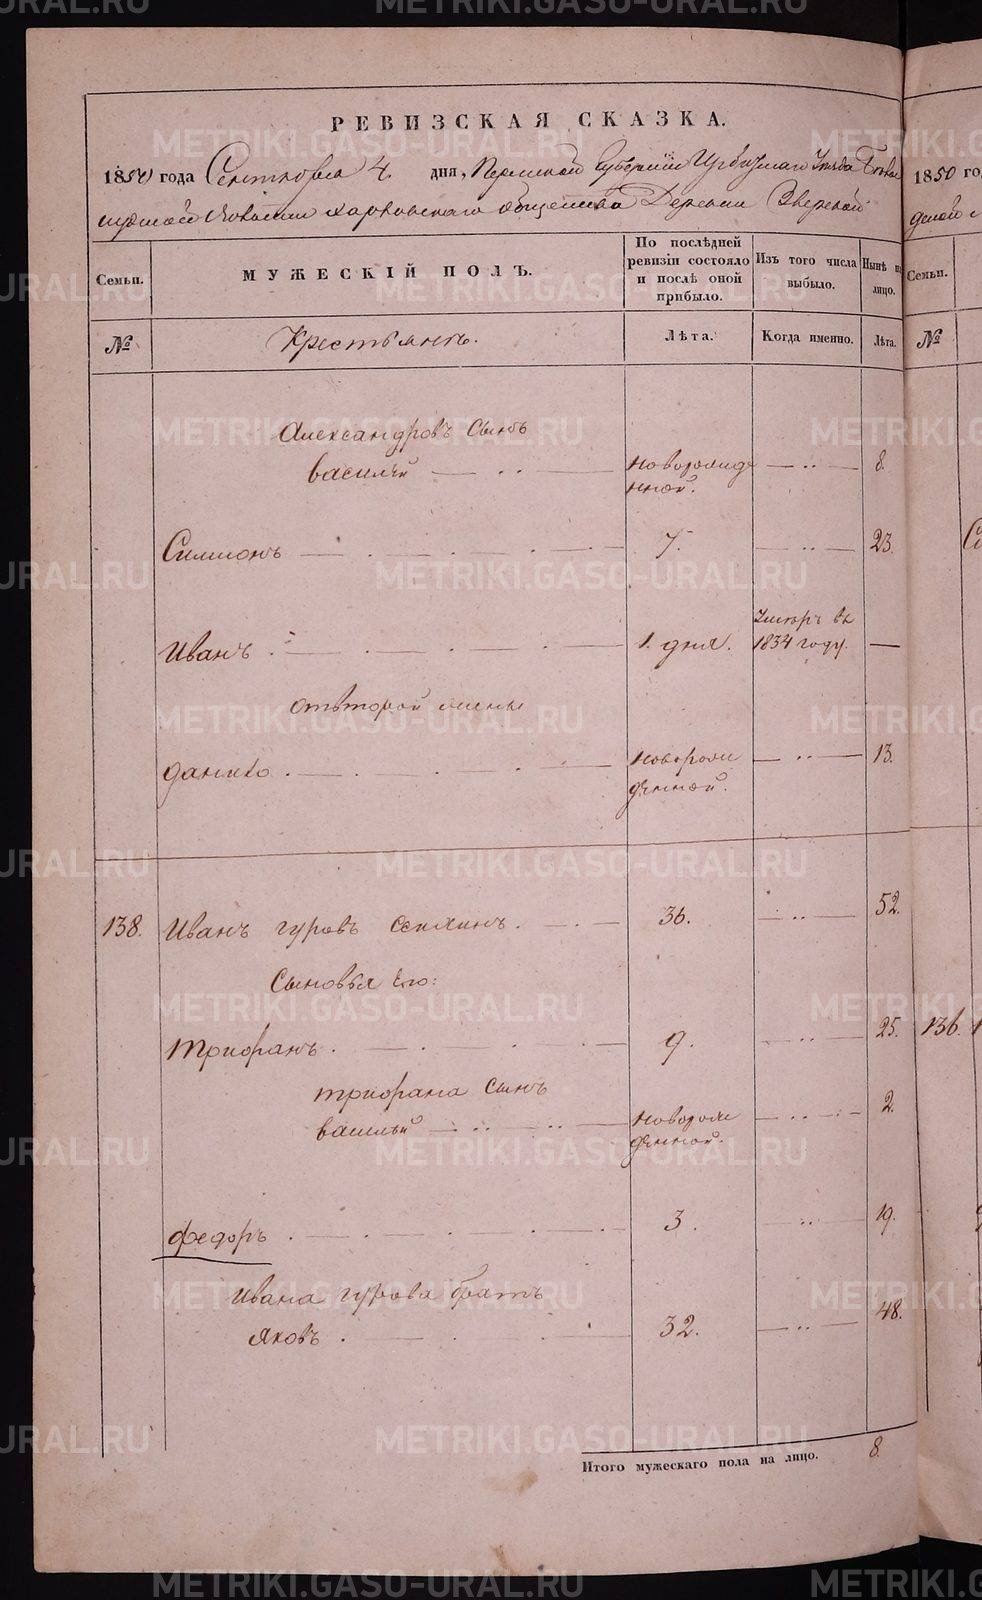 METRIKI.GASO-URAL.RU
РЕВИЗСКАЯ СКАЗКА.
1850 года Сентября 4 дня, Пермской Губернии Ирбитскаго Уезда
волости Харловскаго общества Деревни Зверевой
Семьи.
МУЖЕСКІЙ ПОЛЪ.
По послѣдней ревизіи состояло и послѣ оной прибыло.
Изъ того числа выбыло.
Нынѣ на лицо.
№
Крестьянъ.
Лѣта.
Когда именно.
Лѣта.
Александровъ сынъ
василій — новорожде — 8.
нной.
Симионъ — 7. — 23.
Умеръ въ
Иванъ — 1. дня. 1834 году. —
отвторой жены
данило — новорож — 13.
денной.
138. Иванъ гуровъ сепихинъ. — 36. — 52.
Сыновья Его:
Трифранъ. — 9. — 25.
трифрана сынъ
василій — новорож — 2.
денной.
федоръ — 3. — 19.
Ивана гурова братъ
яковъ — 32. — 48.
Итого мужескаго пола на лицо. 8.
1850 го
Семьи.
№
136.